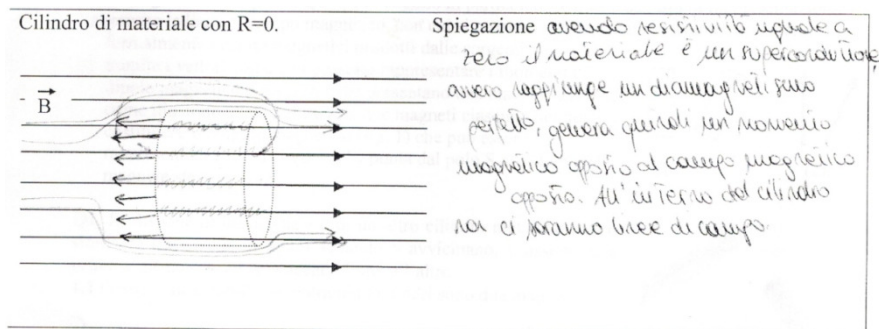 Cilindro di materiale con R=0.
Spiegazione avendo resistività uguale a
zero il materiale è un superconduttore,
ovvero raggiunge un diamagnetismo
perfetto, genera quindi un momento
magnetico opposto al campo magnetico
opposto. All'interno del cilindro
non ci saranno linee di campo.
B